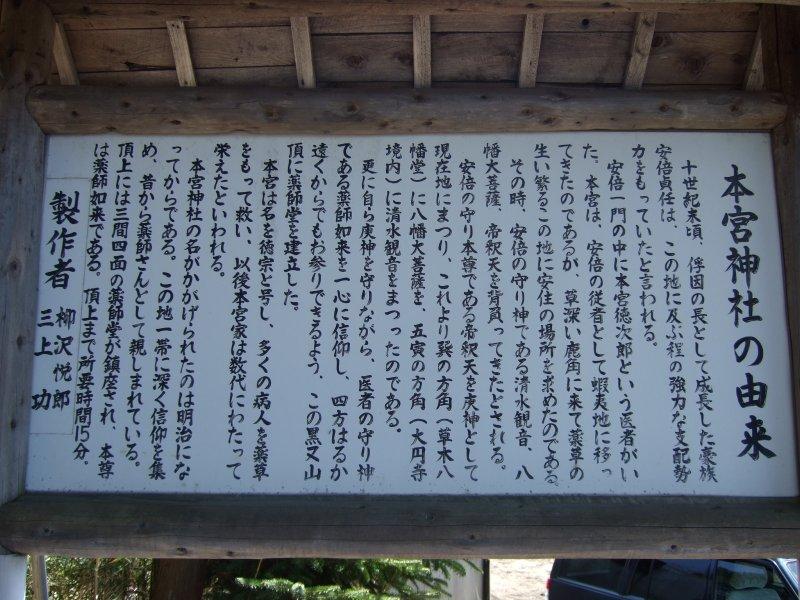 本宮神社の由来
十世紀末頃、俘因の長として成長した豪族
安倍貞任は、この地に及ぶ程の強力な支配勢
力をもっていたと言われる。
安倍一門の中に本宮徳次郎という医者がい
た。本宮は、安倍の従者として蝦夷地に移っ
てきたのであるが、草深い鹿角に来て薬草の
生い繁るこの地に安住の場所を求めたのである。
その時、安倍の守り神である清水観音、八
幡大菩薩、帝釈天を背負ってきたとされる。
安倍の守り本尊である帝釈天を庚神として
現在地にまつり、これより巽の方角（草木八
幡堂）に八幡大菩薩を、五寅の方角（大円寺
境内）に清水観音をまつったのである。
更に自ら庚神を守りながら、医者の守り神
である薬師如来を一心に信仰し、四方はるか
遠くからでもお参りできるよう、この黒又山
頂に薬師堂を建立した。
本宮は名を徳宗と号し、多くの病人を薬草
をもって救い、以後本宮家は数代にわたって
栄えたといわれる。
本宮神社の名がかかげられたのは明治にな
ってからである。この地一帯に深く信仰を集
め、昔から薬師さんとして親しまれている。
頂上には三間四面の薬師堂が鎮座され、本尊
は薬師如来である。頂上まで所要時間15分。
製作者 柳沢悦郎
三上功